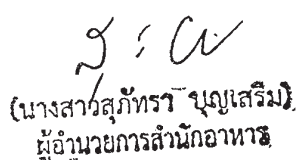 (นางสาวสุภัทรา บุญเสริม)
ผู้อำนวยการสำนักอาหาร